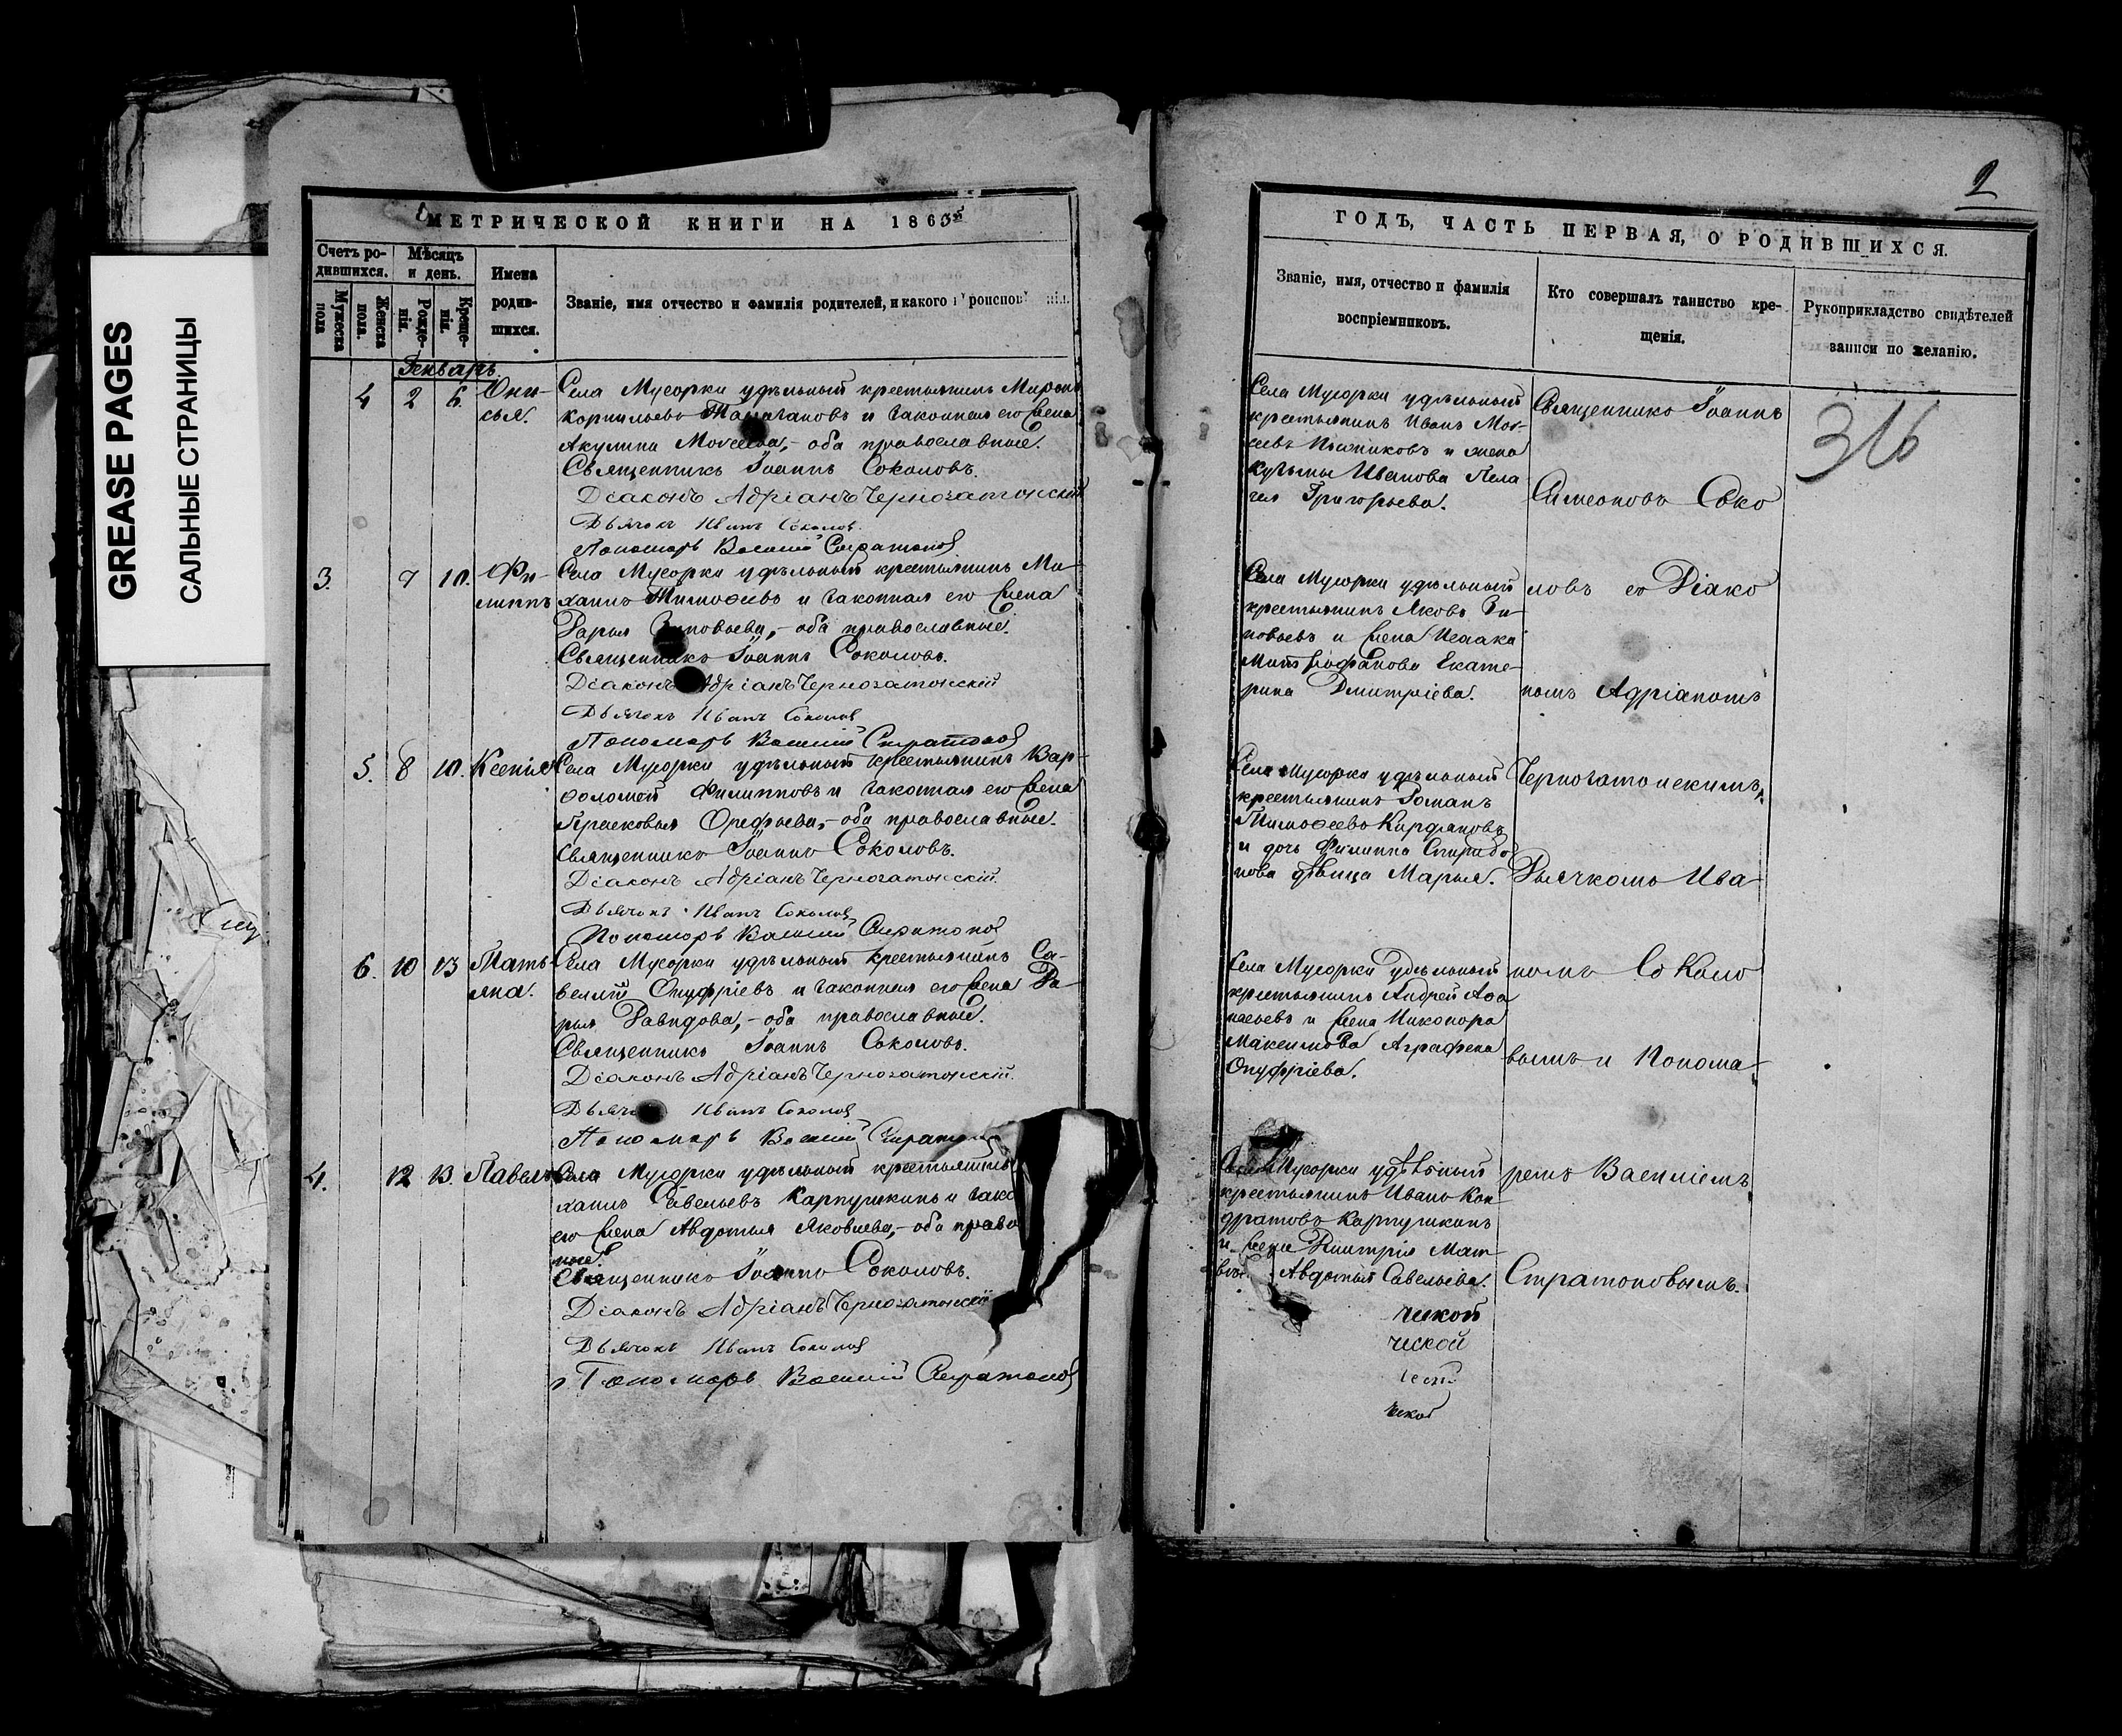 GREASE PAGES
САЛЬНЫЕ СТРАНИЦЫ
МЕТРИЧЕСКОЙ КНИГИ НА 1863й
Счетъ родившихся.
Мужеска пола
Женска пола.
Мѣсяцъ и день.
Рожденія.
Крещенія.
Имена родившихся.
Званіе, имя отчество и фамилія родителей, и какого
Январь
4 2 6. Они-
сья.
Села Мусорки удѣльный крестьянинъ Миронъ
Корнильевъ и законная его жена
Акулина Моисеева, - оба православные.
Священникъ Іоаннъ Соколовъ.
Діаконъ Адріанъ Черногатонскій
Дьячокъ Иванъ Соколов
Пономарь Василий Стратонов
3. 7 10. Фи-
липпъ
Села Мусорки удѣльный крестьянинъ Ми-
хаилъ Тимофеевъ и законная его жена
Дарья Зиновьева, - оба православные.
Священникъ Іоаннъ Соколовъ.
Діаконъ Адріанъ Черногатонскій
Дьячокъ Иванъ Соколов
Пономарь Василий Стратонов
5. 8 10. Ксенія
Села Мусорки удѣльный крестьянинъ Вар-
ѳоломей Филипповъ и законная его жена
Прасковья Орефьева, - оба православные.
Священникъ Іоаннъ Соколовъ.
Діаконъ Адріанъ Черногатонскій.
Дьячокъ Иванъ Соколов
Пономарь Василий Стратонов
6. 10 13 Тать-
яна.
Села Мусорки удѣльный крестьянинъ Са-
велій Онуфріевъ и законная его жена Да-
рья Давидова, - оба православные.
Священникъ Іоаннъ Соколовъ.
Діаконъ Адріанъ Черногатонскій.
Иванъ Соколов
Пономарь Василий
4. 12 13. Павелъ
Села Мусорки удѣльный крестьянинъ
хаилъ Савельевъ Карпушкинъ и зако
его жена Авдотья Яковлева, - оба право
ные.
Священникъ Іоаннъ Соколовъ.
Діаконъ Адріанъ Черногатонскій
Дьячокъ Иванъ Соколов
Пономарь Василий Стратонов
2
ГОДЪ, ЧАСТЬ ПЕРВАЯ, О РОДИВШИХСЯ.
Званіе, имя, отчество и фамилія
воспріемниковъ.
Кто совершалъ таинство кре-
щенія.
Рукоприкладство свидѣтелей
записи по желанію.
Села Мусорки удѣльный
крестьянинъ Иванъ Мои-
сеевъ и жена
Кузьмы Иванова Пела
гея Григорьева.
Священникъ Іоаннъ
Симеоновъ Соко
316
Села Мусорки удѣльный
крестьянинъ Яковъ Зи-
новьевъ и жена Исаака
Митрофанова Екате-
рина Дмитріева.
ловъ со Діако
номъ Адріаномъ
Села Мусорки удѣльный
крестьянинъ Романъ
Тимоѳеевъ
и дочь Филиппа Спиридо
нова дѣвица Марья.
Черногатонскимъ,
Дьячкомъ Ива
Села Мусорки удѣльный
крестьянинъ Андрей Аѳа
насьевъ и жена Никонора
Максимова Аграфена
Онуфріева.
номъ Соколо
вымъ и Понома-
Мусорки удѣльный
крестьянинъ Иванъ Кон
дратовъ Карпушкинъ
и жена Дмитрія Мат
Авдотья Савельева.
ремъ Василіемъ
Стратоновымъ.
ческой
ческой
ческой